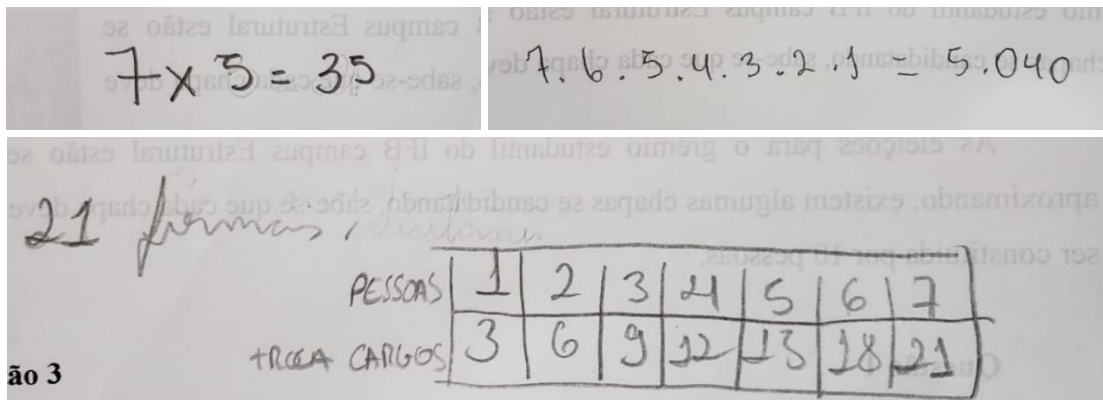 7 x 5 = 35
7.6.5.4.3.2.1 = 5.040
21 formas,
PESSOAS 1 2 3 4 5 6 7
TROCA CARGOS 3 6 9 12 15 18 21
ão 3